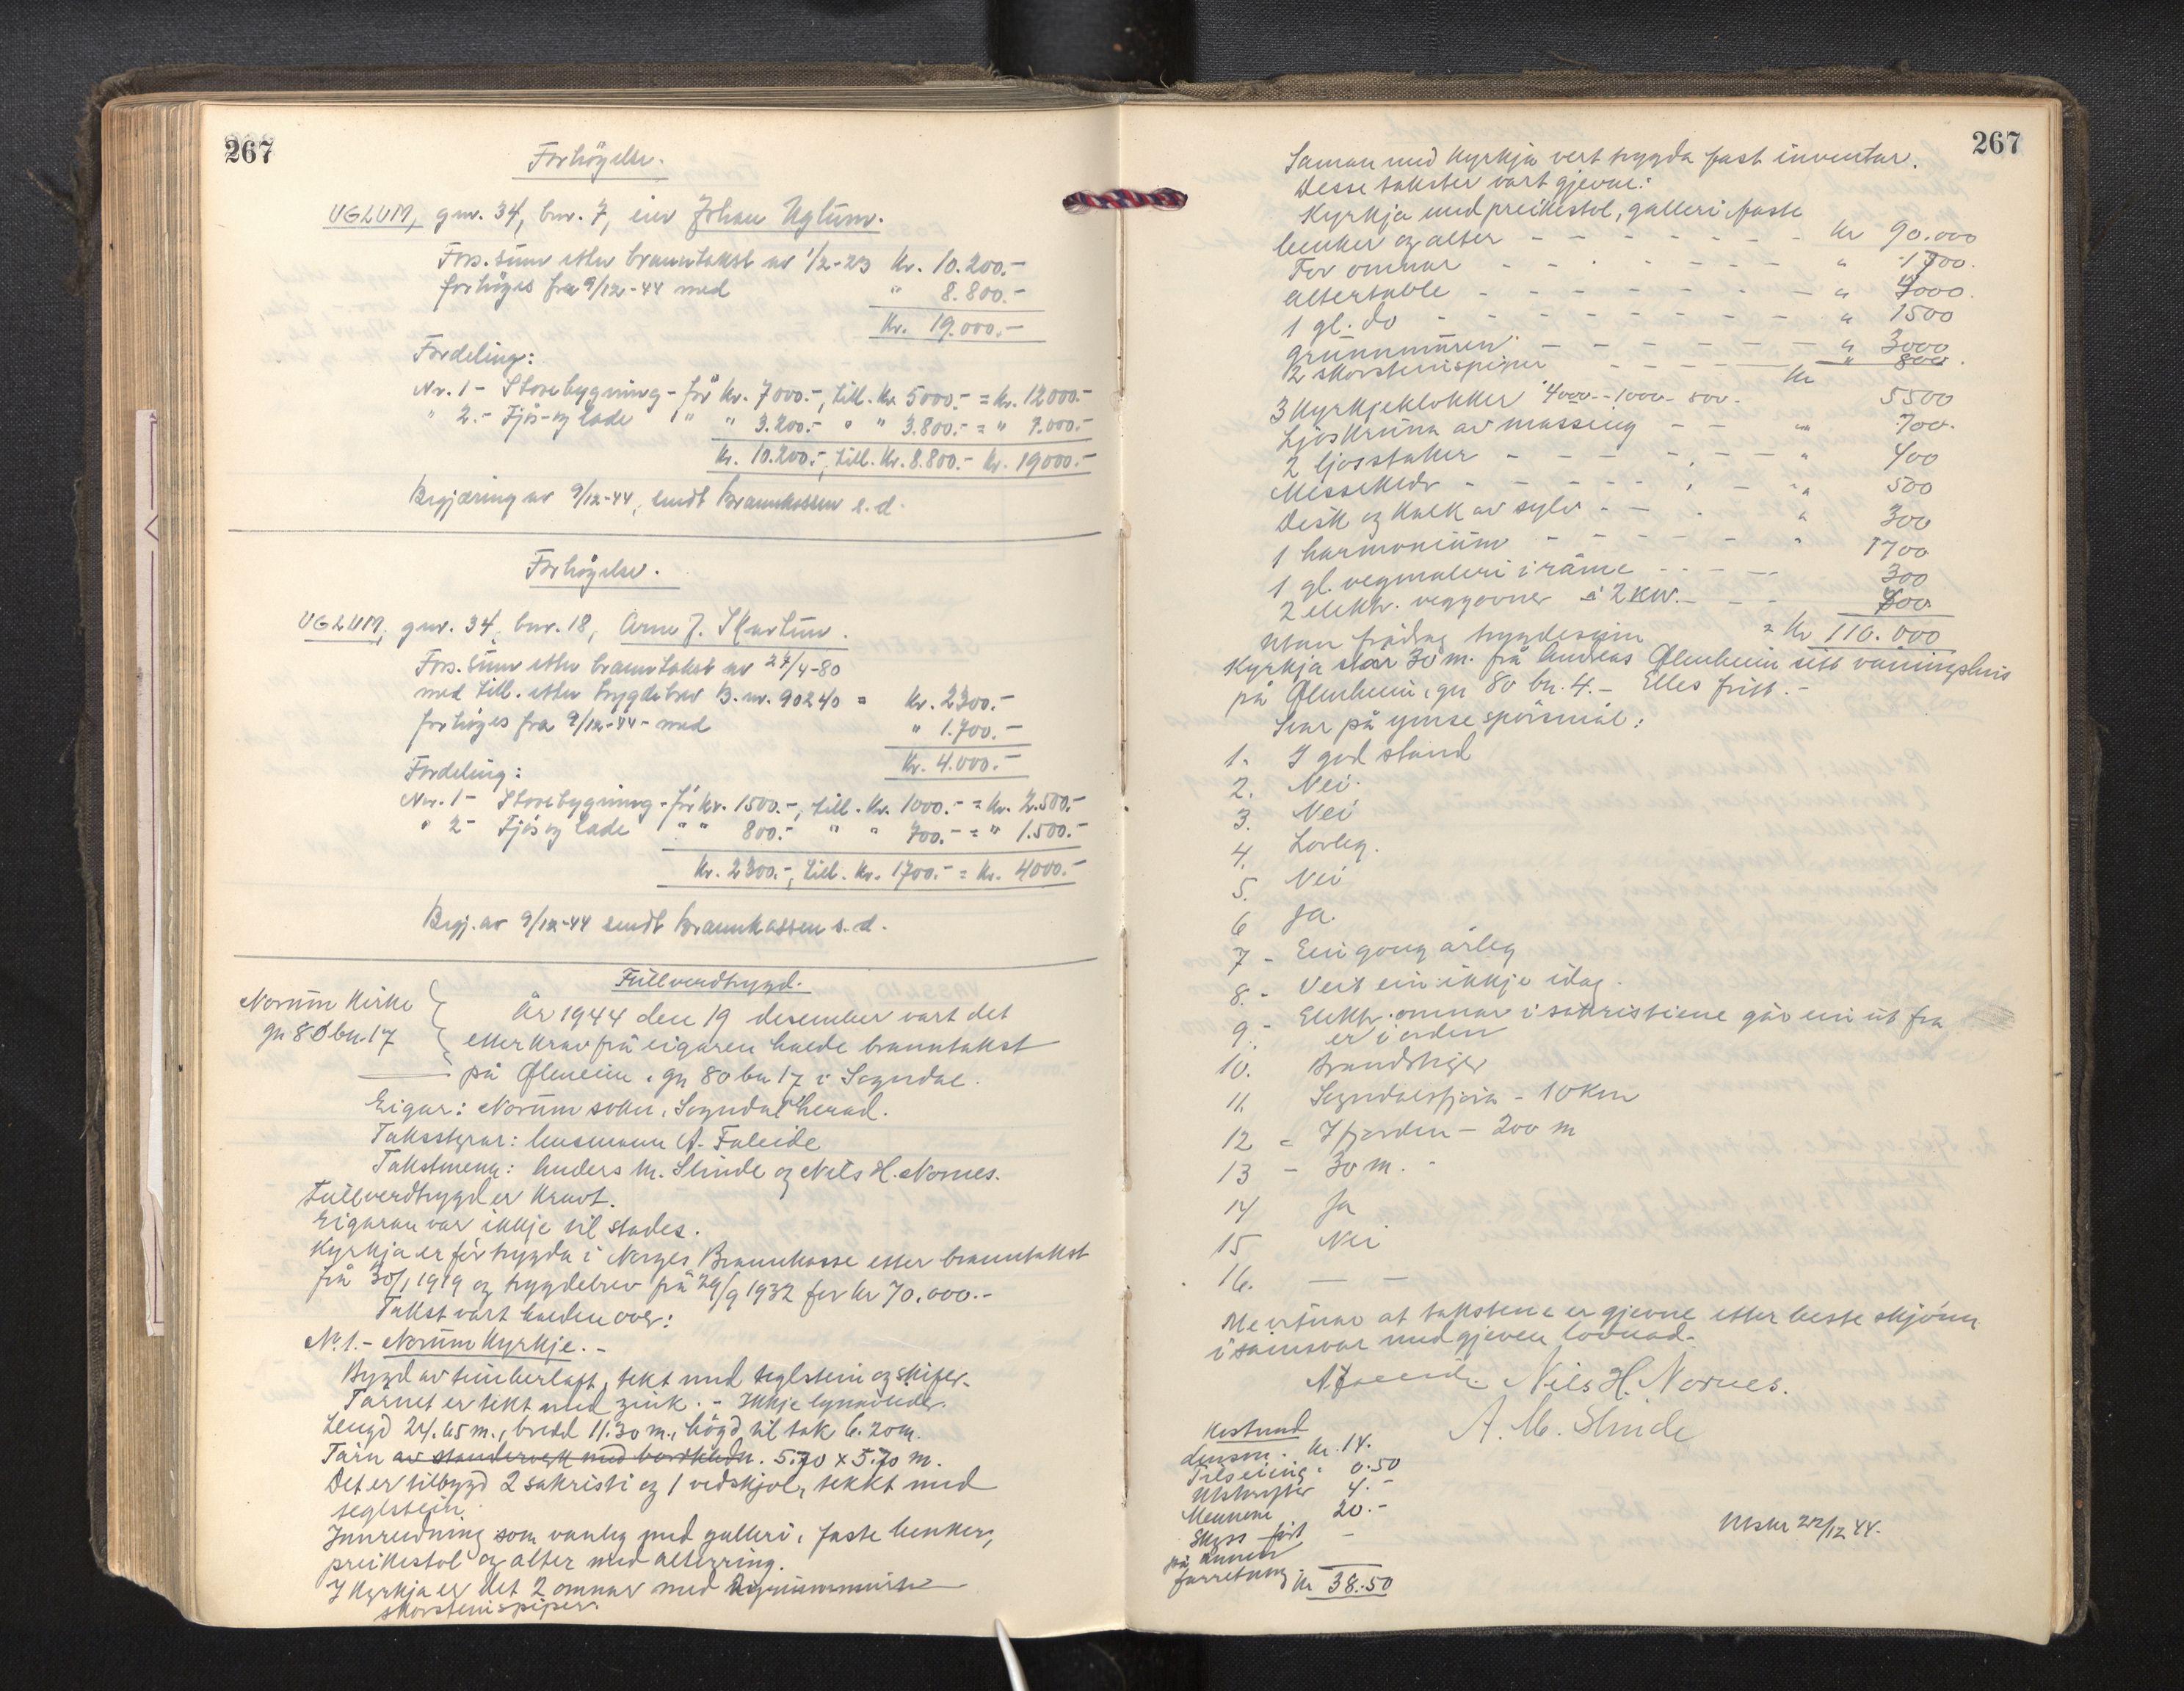 267
Forhögelse.
UGLUM, gnr. 34, bnr. 7, eier Johan Uglum.
Fors.sum etter branntakst av 1/2-23 Kr. 10.200.-
forhöges fra 9/12-44 med " 8.800.-
Kr. 19.000.-
Fordeling:
Nr. 1 - Stovebygning - för kr. 7000.-, till. kr. 5000.- = kr. 12000.-
" 2.- Fjös- og lade " " 3.200.- " " 3.800.- = " 7.000.-
Kr. 10.200.-, till. Kr. 8.800.- Kr. 19000.-
Begjæring av 9/12-44, sendt Brannkassen s.d.
Forhögelse.
UGLUM, gnr. 34, bnr. 18, Arne J. Skartun.
Fors.sum etter branntakst av 27/4-80
med till. etter trygdebrev B.nr. 90240 = Kr. 2300.-
forhöges fra 9/12-44 - med " 1.700.-
Kr. 4.000.-
Fordeling:
Nr. 1 - Stovebygning - för kr. 1500.-, till. Kr. 1000.- = Kr. 2.500.-
" 2 - Fjös og lade " " 800.- " " 700.- = " 1.500.-
Kr. 2300.-, till. Kr. 1700.- = Kr. 4000.-
Begj. av 9/12-44 sendt Brannkassen s.d.
Fullverdtrygd.
Norum Kirke
gn 80 bn. 17
År 1944 den 19 desember vart det
etter krav frå eigaren halde branntakst
på Ølmheim, gn 80 bn 17 i Sogndal.
Eigar: Norum sokn, Sogndal herad.
Takstyrar: lensmann A. Faleide
Takstmenn: Anders M. Slinde og Nils H. Nornes.
Fullverdtrygd er kravt.
Eigaran var ikkje til stades.
Kyrkja er för trygda i Norges Brannkasse etter branntakst
frå 30/1 1919 og trygdebrev frå 29/9 1932 for kr 70.000.-
Takst vart halden over:
No 1.- Norum Kyrkje.-
Bygd av timberlaft, tekt med teglstein og skifer.
Tårnet er tekt med zink. - Ikkje lynavleder.
Lengd 24.65 m., bredd 11.30 m., högd til tak 6.20 m.
Tårn av standerverk med bordkledn. 5.70 x 5.70 m.
Det er tilbygd 2 sakristi og 1 vedskjol, tekkt med
teglstein.
Innreidning som vanleg med galleri, faste benker,
preikestol og alter med alterring.
I kyrkja er det 2 omnar med
skorsteinspiper.
267
Saman med kyrkja vert trygda fast inventar.
Desse takster vart gjevne:
Kyrkja med preikestol, galleri, faste
benker og alter - - - - - - - kr 90.000
For omnar - - - - - - - " 1700.
Altertable - - - - - - - " 4000.
1 gl. do - - - - - - - " 1500
Grunnmuren - - - - - - " 3000
2 skorsteinspiper - - - - - " 800.
3 kyrkjeklokker 4000 - 1000 - 500 - Kr 5500
Ljoskruna av messing - - " 700.
2 ljosstaker - - - - - - " 400
Messeklede - - - - - - " 500
Disk og kalk av sylv - - - " 300
1 harmonium - - - - - " 1700
1 gl. vegmaleri i råme - - - - 300
2 elektr. veggovner à 2 kw. - - 600
Utan frådrag trygdesum = Kr 110.000
Kyrkja står 30 m. frå Andreas Ølmheim sitt våningshus
på Ølmheim, gn 80 bn. 4. - Elles fritt. -
Svar på ymse spörsmål:
1. I god stand
2. Nei.
3. Nei
4. Lovleg.
5. Nei
6 Ja.
7 - Ein gong årleg
8. - Veit ein ikkje idag.
9. - Elektr. omnar i sakristiene går ein ut fra
er i orden
10. Brandstiger
11. Sogndalsfjöra - 10 km
12 - I fjorden - 200 m
13 - 30 m. -
14 Ja
15 Nei
16. — —
Me vitnar at takstene er gjevne etter beste skjönn
i samsvar med gjeven lovnad.
A Faleide. Nils H. Nornes.
A. M. Slinde
Kostnad
Lensm. kr. 14.
Tilseiing. 0.50
Utskrifter 4.-
Mennene 20.-
Skyss fört -
på annen
forretning
Kr 38.50
Utskr 22/12 44.